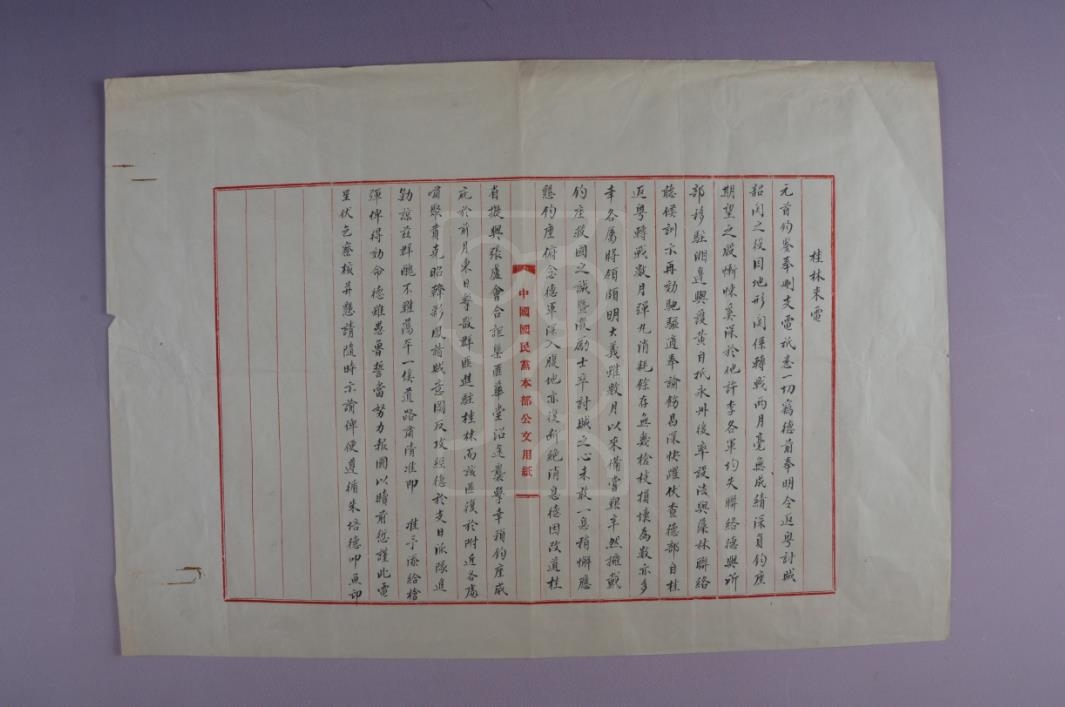 桂林來電
元首鈞鑒奉刪支電祇悉一切竊德前奉明令返粵討賊
韶關之役因地形關係轉戰兩月毫無成績深負鈞座
期望之殷慚悚奚深於他許李各軍均失聯絡德與所
部移駐湘邊與護黃自抵永州後率設法與藻林聯絡
聽候訓示再効馳驅適奉諭飭曷深快躍伏查德部自桂
返粵轉戰數月彈九消耗餘存無幾槍枝損壞為數亦多
幸各屬將領頗明大義雖數月以來備嘗艱辛然擁戴
鈞座救國之誠暨激勵士卒討賊之心未敢一息稍懈應
懇鈞座俯念德軍深入腹地亦復斷絕消息德因改道桂
中國國民黨本部公文用紙
省擬與張盧會合詎集匪華堂沿途襲擊幸賴鈞座威
庇於前月東日擊散群匪進駐桂林而該匪復於附近各處
嘯聚賁克昭韓彩鳳諸賊意圖反攻經德於支日派隊進
勦諒茲群醜不難蕩平一俟道路肅清准即 准予添給槍
彈俾得効命德雖愚魯誓當努力報國以贖前愆謹此電
呈伏乞察核并懇請隨時示諭俾便遵循朱培德叩魚印